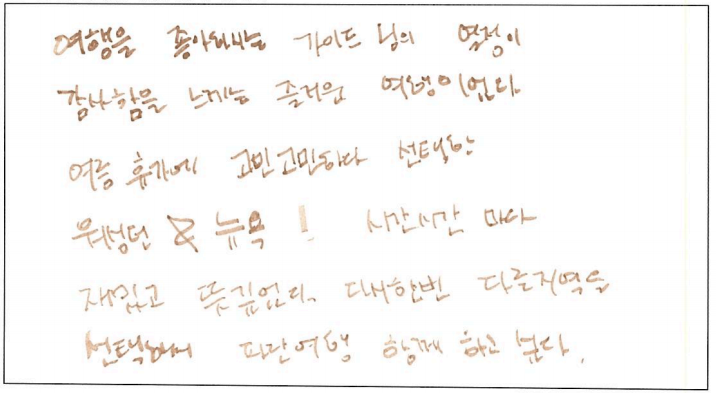 여행을 좋아하시는 가이드 님의 열정이
감사함을 느끼는 즐거운 여행이었다
여름 휴가에 고민고민하다 선택한
워싱턴 & 뉴욕 ! 시간시간 마다
재밌고 뜻깊었다. 다시한번 다른지역을
선택해서 파란여행 함께 하고 싶다.